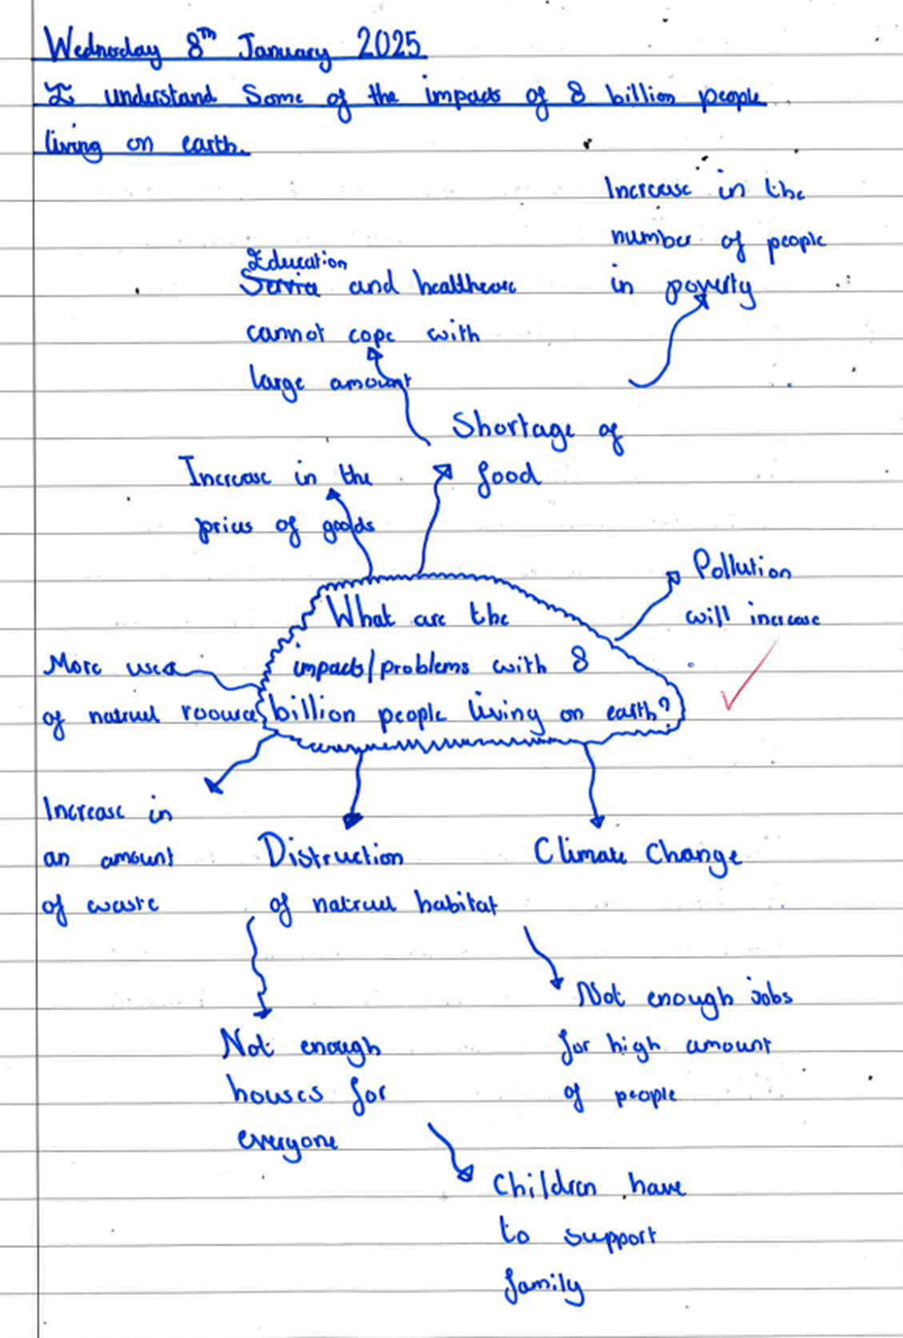 Wednesday 8th January 2025
I understand Some of the impacts of 8 billion people
living on earth.
Increase in the
number of people
in poverty
Education
Service and healthcare
cannot cope with
large amount
Shortage of
food
Increase in the
prices of goods
Pollution
will increase
What are the
impacts/problems with 8
billion people living on earth?
More use
of natrual
Increase in
an amount
of waste
Distruction
of natrual habitat
Climate Change
Not enough
houses for
everyone
Not enough jobs
for high amount
of people
Children have
to support
family